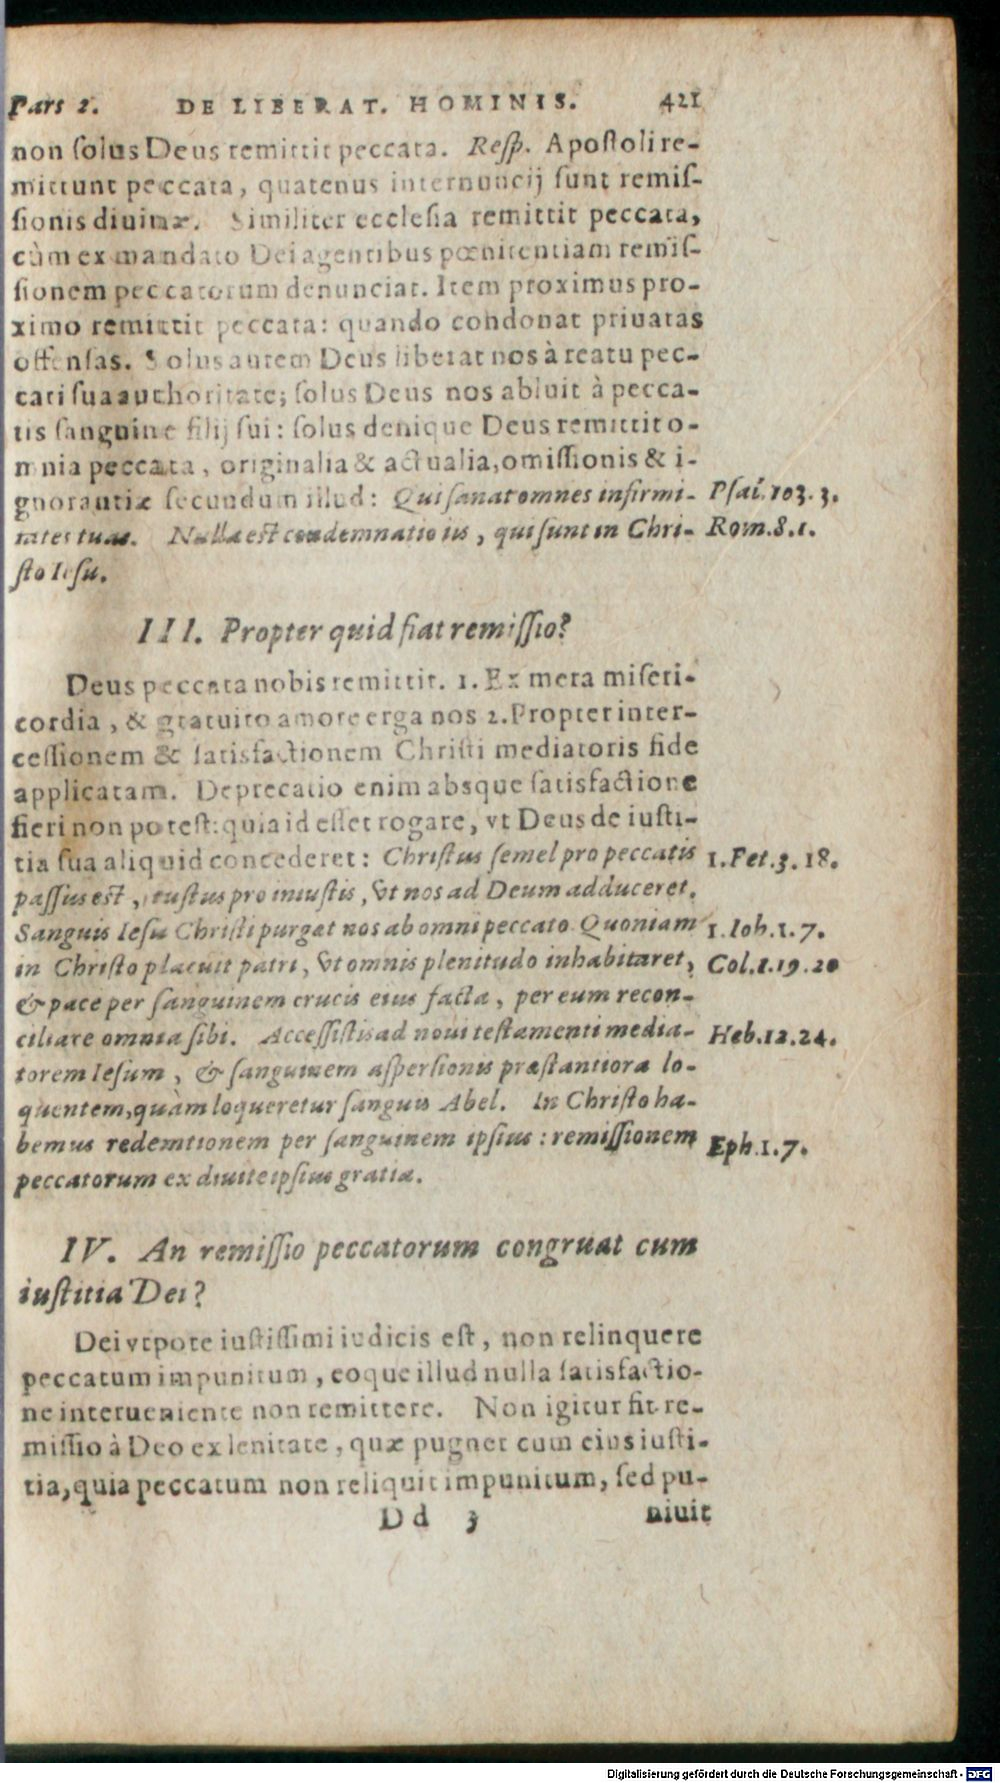 Pars 2. DE LIBERAT. HOMINIS. 421
non ſolus Deus remittit peccata. Reſp. Apoſtoli re-
mittunt peccata, quatenus internuncij ſunt remiſ-
ſionis diuinæ. Similiter eccleſia remittit peccata,
cùm ex mandato Dei agentibus pœnitentiam remiſ-
ſionem peccatorum denunciat. Item proximus pro-
ximo remittit peccata: quando condonat priuatas
offenſas. Solus autem Deus liberat nos à reatu pec-
cati ſua authoritate; ſolus Deus nos abluit à pecca-
tis ſanguine filij ſui: ſolus denique Deus remittit o-
mnia peccata, originalia & actualia, omiſſionis & i-
gnorantiæ ſecundum illud: Qui ſanat omnes infirmi- Pſal. 103. 3.
tates tuas. Nulla est condemnatio iis, qui ſunt in Chri- Rom. 8. 1.
ſto Ieſu.
III. Propter quid fiat remiſſio?
Deus peccata nobis remittit. 1. Ex mera miſeri-
cordia, & gratuito amore erga nos 2. Propter inter-
ceſſionem & ſatisfactionem Chriſti mediatoris fide
applicatam. Deprecatio enim absque ſatisfactione
fieri non poteſt: quia id eſſet rogare, vt Deus de iuſti-
tia ſua aliquid concederet: Chriſtus ſemel pro peccatis 1. Pet. 3. 18.
paſſus eſt, iuſtus pro iniuſtis, vt nos ad Deum adduceret.
Sanguis Ieſu Chriſti purgat nos ab omni peccato. Quoniam 1. Ioh. 1. 7.
in Chriſto placuit patri, vt omnis plenitudo inhabitaret, Col. 1. 19. 20
& pace per ſanguinem crucis eius facta, per eum recon-
ciliare omnia ſibi. Acceſſiſtis ad noui teſtamenti media- Heb. 12. 24.
torem Ieſum, & ſanguinem aſperſionis præſtantiora lo-
quentem, quàm loqueretur ſanguis Abel. In Chriſto ha-
bemus redemtionem per ſanguinem ipſius: remiſſionem Eph. 1. 7.
peccatorum ex diuite ipſius gratia.
IV. An remiſſio peccatorum congruat cum
iuſtitia Dei?
Dei vtpote iuſtiſſimi iudicis eſt, non relinquere
peccatum impunitum, eoque illud nulla ſatisfactio-
ne interueniente non remittere. Non igitur fit re-
miſſio à Deo ex lenitate, quæ pugnet cum eius iuſti-
tia, quia peccatum non reliquit impunitum, ſed pu-
Dd 3 niuit
Digitalisierung gefördert durch die Deutsche Forschungsgemeinschaft - DFG